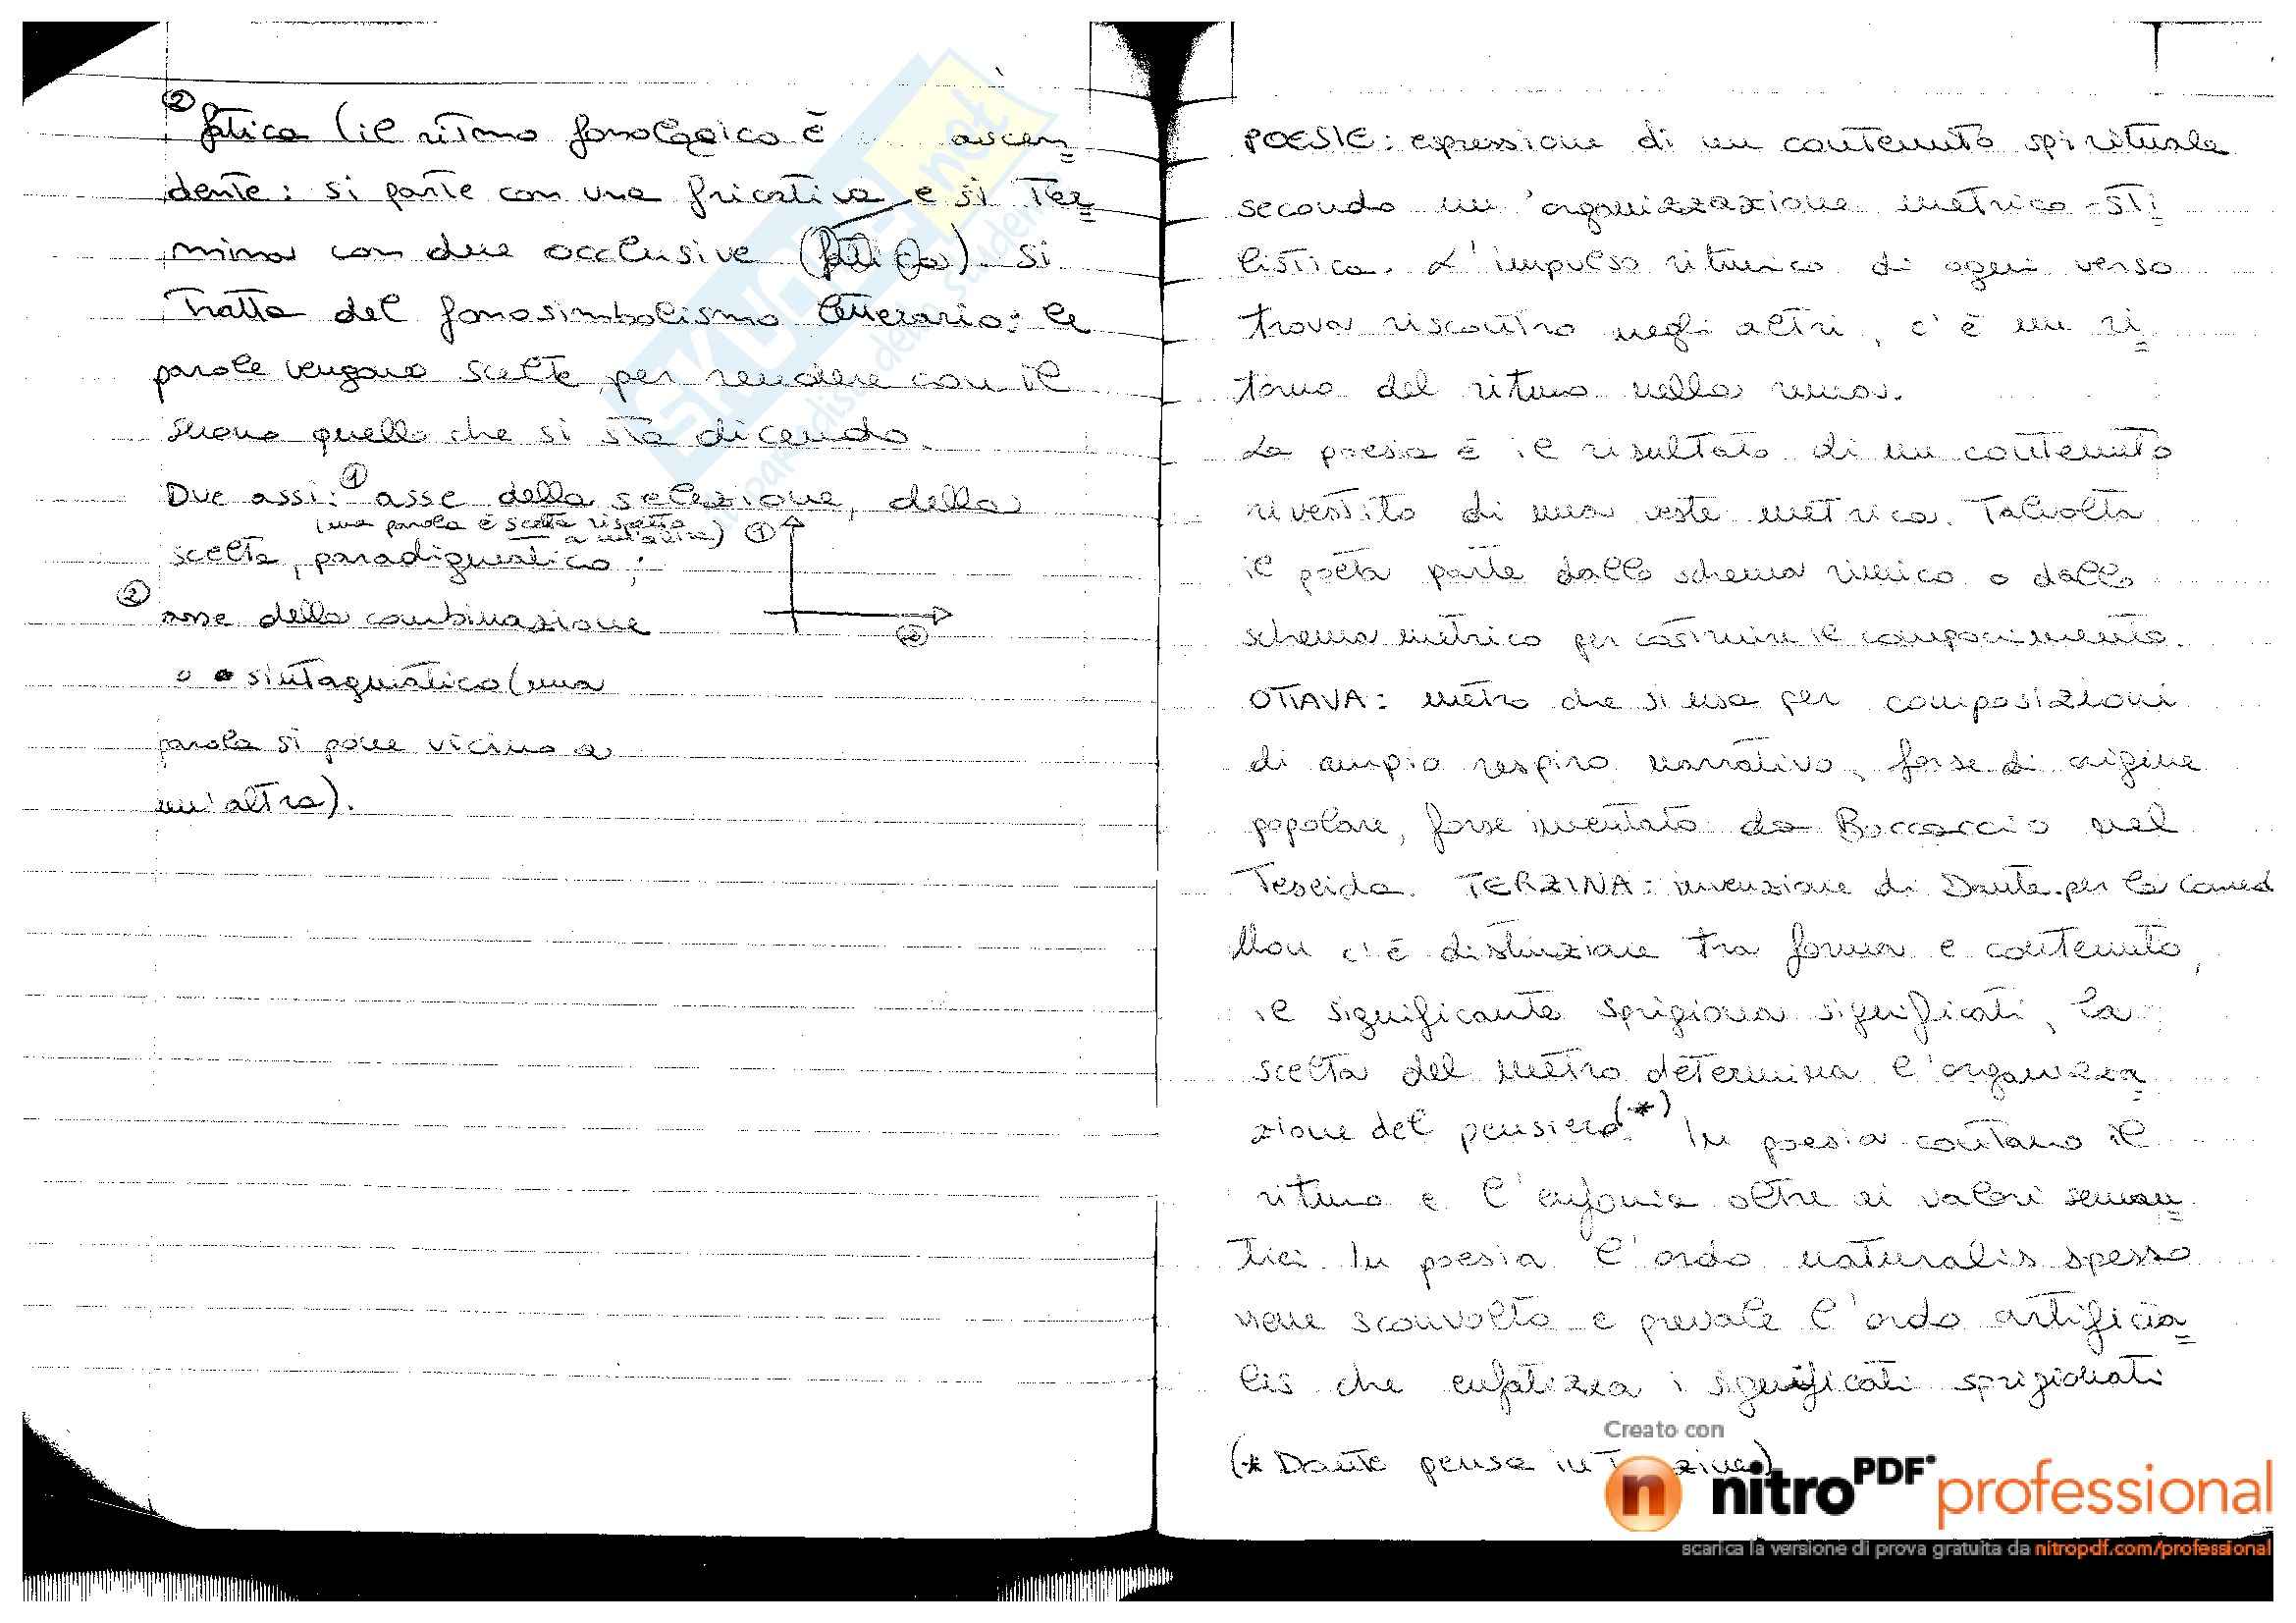 ②
fatica (il ritmo fonologico è ascen=
dente: si parte con una fricativa e si ter=
mina con due occlusive (fatica). Si
tratta del fonosimbolismo letterario: le
parole vengono scelte per rendere con il
suono quello che si sta dicendo.
Due assi: ① asse della selezione, della
(una parola è scelta rispetto
a un'altra) ①
scelta, paradigmatico;
② asse della combinazione
②
o sintagmatico (una
parola si pone vicino a
un'altra).
POESIE: espressione di un contenuto spirituale
secondo un'organizzazione metrico-sti
listica. L'impulso ritmico di ogni verso
trova riscontro negli altri, c'è un ri=
torno del ritmo nella rima.
La poesia è il risultato di un contenuto
rivestito di una veste metrica. Talvolta
il poeta parte dallo schema rimico o dallo
schema metrico per costruire il componimento.
OTTAVA: metro che si usa per composizioni
di ampio respiro narrativo, forse di origine
popolare, forse inventato da Boccaccio nel
Teseida. TERZINA: invenzione di Dante per la Comed
Non c'è distinzione tra forma e contenuto,
il significante sprigiona significati, la
scelta del metro determina l'organizza
zione del pensiero.(*) In poesia contano il
ritmo e l'eufonia oltre ai valori seman=
tici. In poesia l'ordo naturalis spesso
viene sconvolto e prevale l'ordo artificia=
lis che enfatizza i significati sprigionati
(* Dante pensa in terzine)
SKUOLA.net
il paradiso dello studente
Creato con
nitroPDF professional
scarica la versione di prova gratuita da nitropdf.com/professional